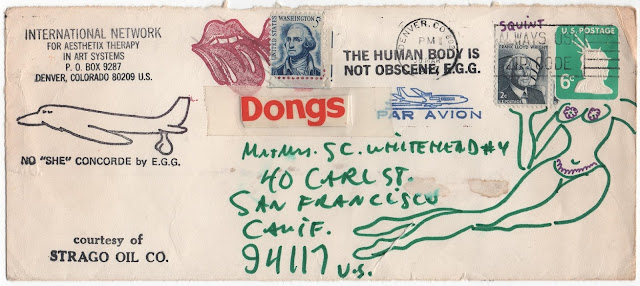 INTERNATIONAL NETWORK
FOR AESTHETIX THERAPY
IN ART SYSTEMS
P. O. BOX 9287
DENVER, COLORADO 80209 U.S.
WASHINGTON 5¢
UNITED STATES POSTAGE
THE HUMAN BODY IS
NOT OBSCENE, E.G.G.
DENVER, CO
PM
SQUINT
ALWAYS USE
ZIP CODE
FRANK LLOYD WRIGHT
2¢
U.S. POSTAGE
U.S. POSTAGE
6¢
Dongs
PAR AVION
NO "SHE" CONCORDE by E.G.G.
Mr+Mrs. SC. WHITEHEAD #4
40 CARL ST.
SAN FRANCISCO
CALIF.
94117 U.S.
courtesy of
STRAGO OIL CO.